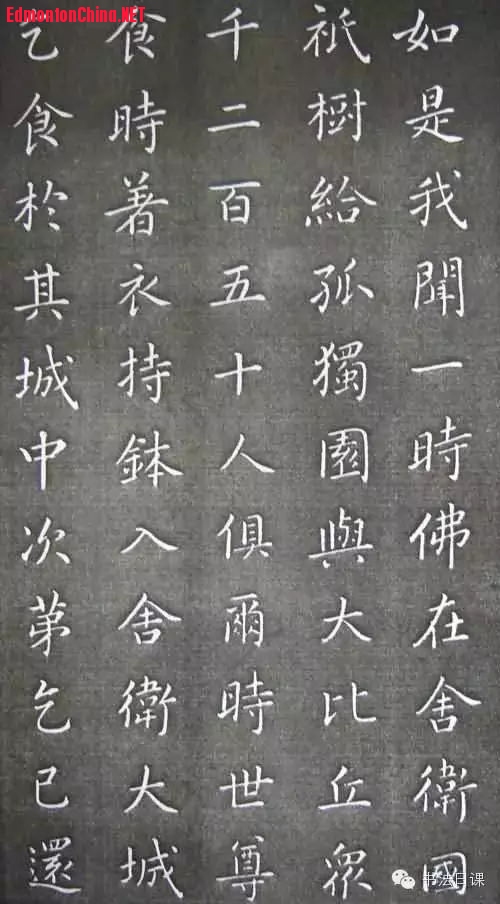 EdmontonChina.NET
如是我聞一時佛在舍衛國
祇樹給孤獨園與大比丘眾
千二百五十人俱爾時世尊
食時著衣持鉢入舍衛大城
乞食於其城中次第乞已還
书法日课